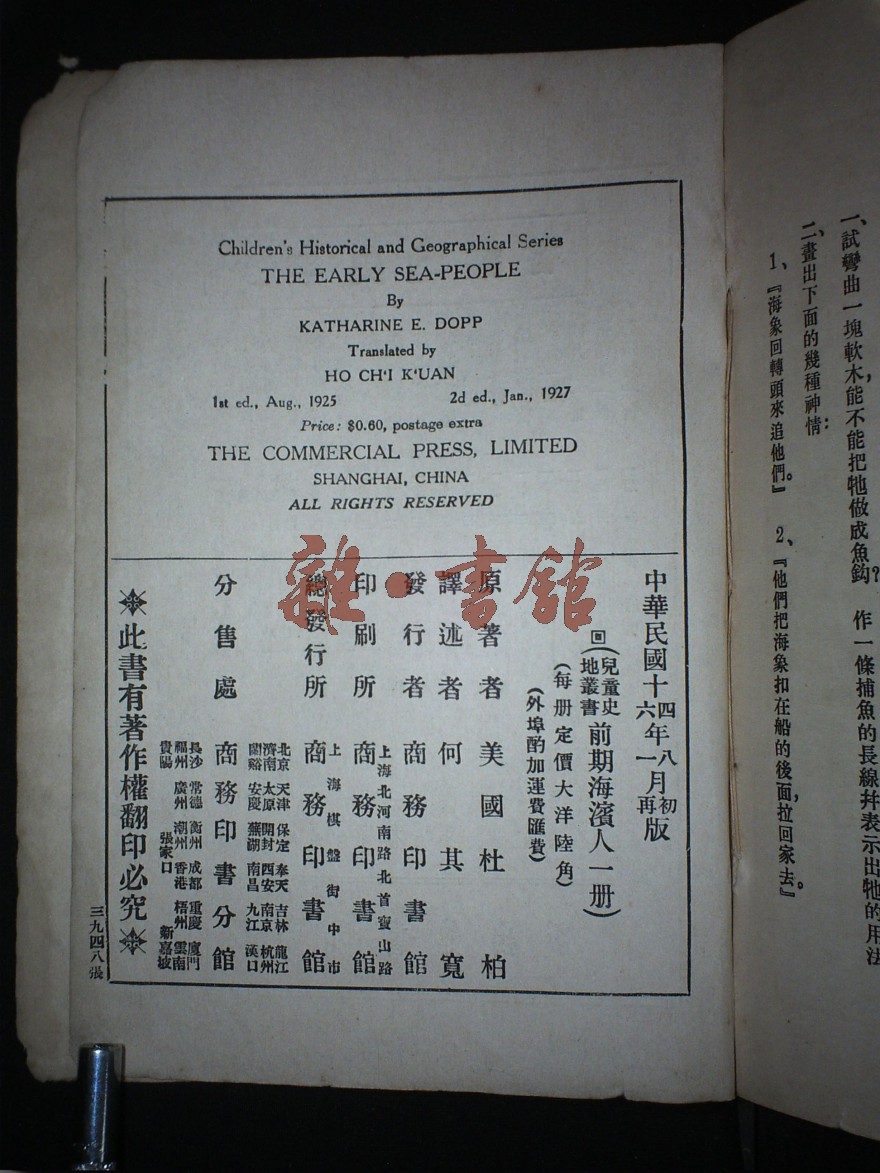 Children's Historical and Geographical Series
THE EARLY SEA-PEOPLE
By
KATHARINE E. DOPP
Translated by
HO CH'I K'UAN
1st ed., Aug., 1925 2d ed., Jan., 1927
Price: $0.60, postage extra
THE COMMERCIAL PRESS, LIMITED
SHANGHAI, CHINA
ALL RIGHTS RESERVED
中華民國十四年八月初版
六年一月再版
(兒童史地叢書)前期海濱人一册)
(每册定價大洋陸角)
(外埠酌加運費匯費)
原著者 美國杜柏
譯述者 何其寬
發行者 商務印書館
上海北河南路北首寶山路
印刷所 商務印書館
上海棋盤街中市
總發行所 商務印書館
北京 天津 保定 奉天 吉林 龍江
濟南 太原 開封 西安 南京 杭州
蘭谿 安慶 蕪湖 南昌 九江 漢口
分售處 商務印書分館
長沙 常德 衡州 成都 重慶 廈門
福州 廣州 潮州 香港 梧州 雲南
貴陽 張家口 新嘉坡
此書有著作權翻印必究
三九四八張
雜·書館
一、試彎曲一塊軟木,能不能把牠做成魚鈎? 作一條捕魚的長線并表示出牠的用法
二、畫出下面的幾種神情:
1、『海象回轉頭來追他們。』 2、『他們把海象扣在船的後面,拉回家去。』